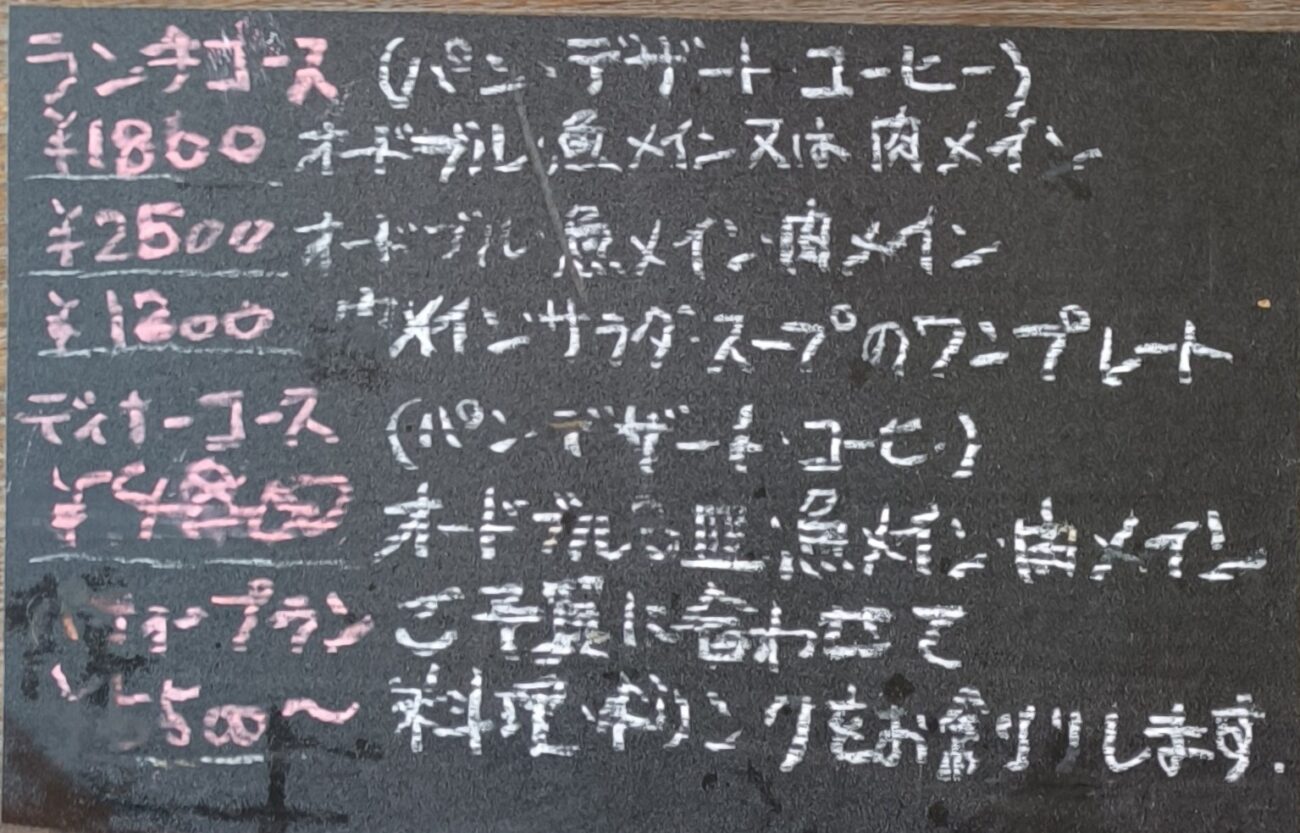 ランチコース (パン・デザート・コーヒー)
¥1800 オードブル・魚メイン又は肉メイン
¥2500 オードブル・魚メイン・肉メイン
¥1200 肉メイン・サラダ・スープのワンプレート
ディナーコース (パン・デザート・コーヒ)
オードブル3皿・魚メイン・肉メイン
プラン ご予算に合わせて
500〜 料理・ドリンクをお創りします.